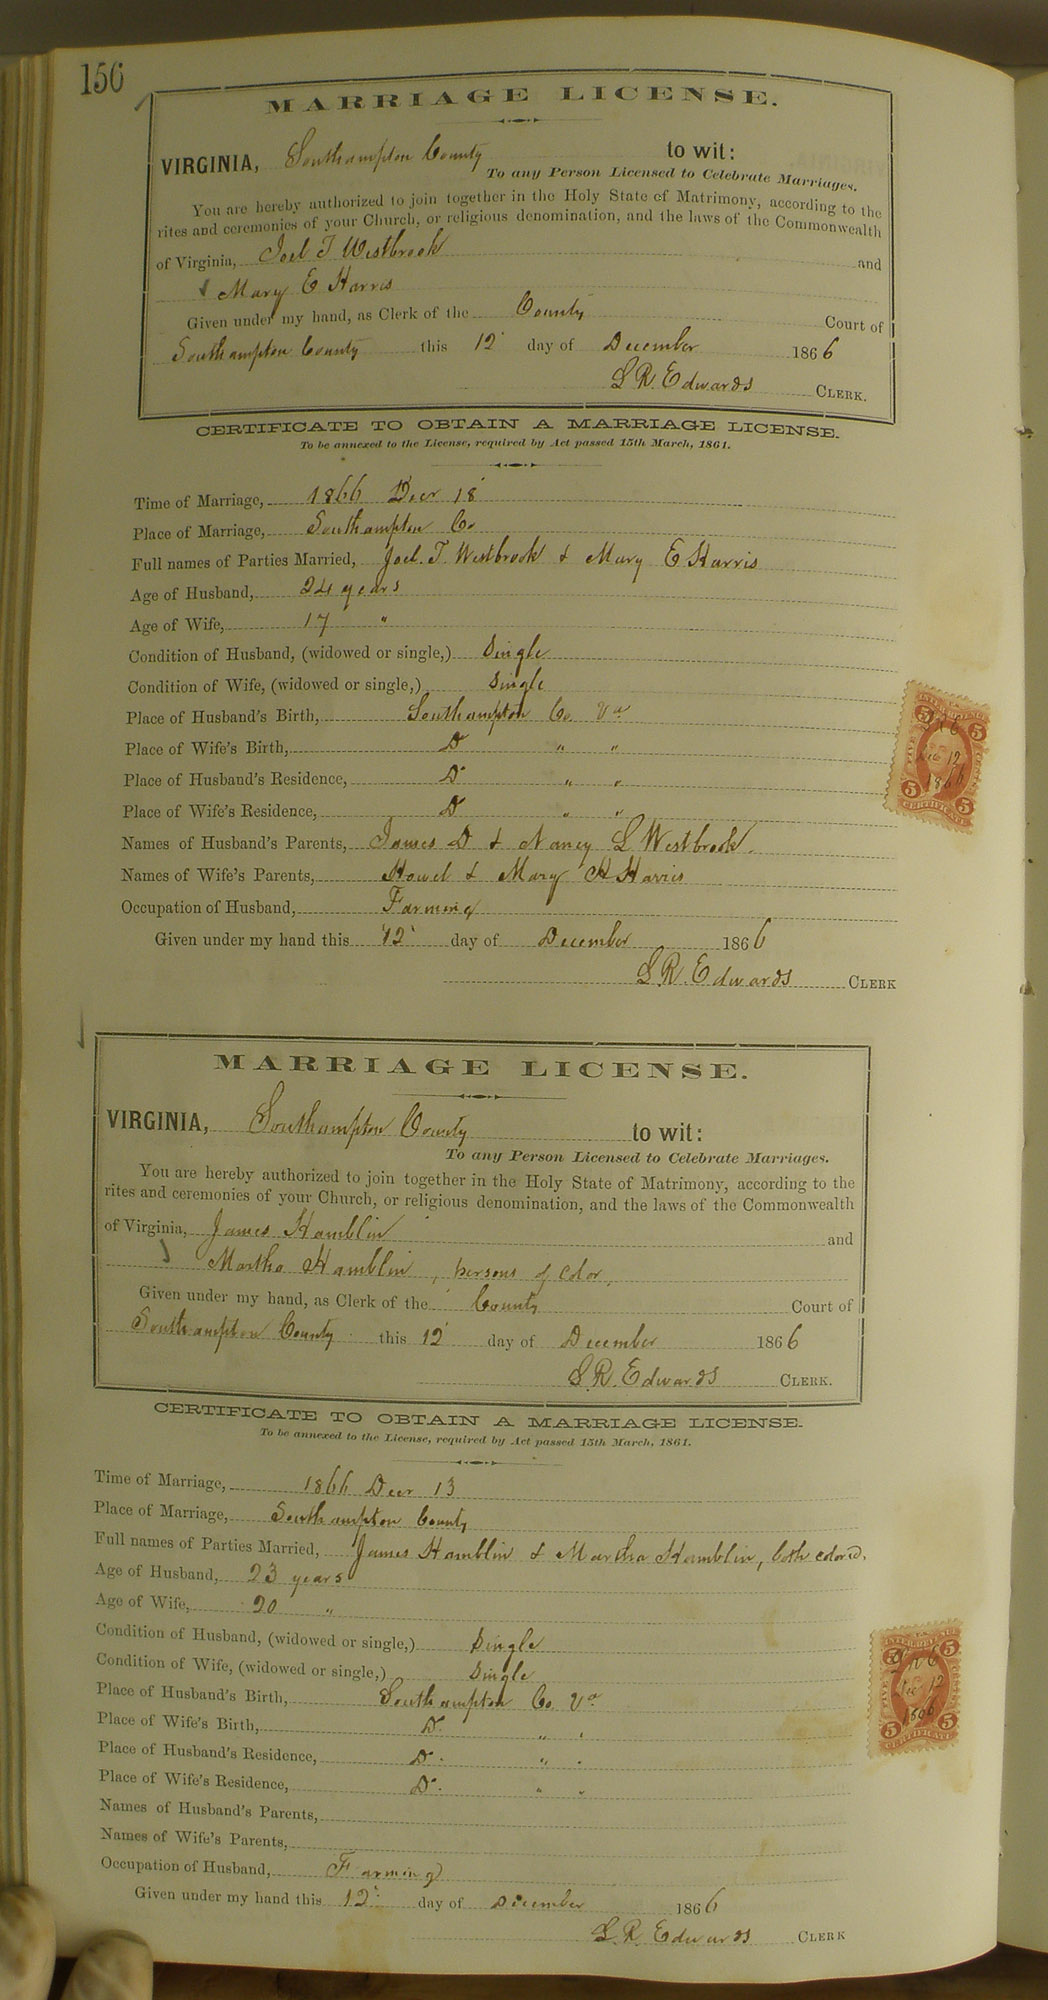 156
MARRIAGE LICENSE.
VIRGINIA, Southampton County to wit:
To any Person Licensed to Celebrate Marriages.
You are hereby authorized to join together in the Holy State of Matrimony, according to the
rites and ceremonies of your Church, or religious denomination, and the laws of the Commonwealth
of Virginia, Joel T Westbrook and
Mary E Harris
Given under my hand, as Clerk of the County Court of
Southampton County this 12 day of December 1866
L R. Edwards CLERK.
CERTIFICATE TO OBTAIN A MARRIAGE LICENSE.
To be annexed to the License, required by Act passed 15th March, 1861.
Time of Marriage, 1866 Decr 18
Place of Marriage, Southampton Co
Full names of Parties Married, Joel. T. Westbrook & Mary E Harris
Age of Husband, 24 years
Age of Wife, 17 "
Condition of Husband, (widowed or single,) Single
Condition of Wife, (widowed or single,) Single
Place of Husband's Birth, Southampton Co Va
Place of Wife's Birth, Do " "
Place of Husband's Residence, Do " "
Place of Wife's Residence, Do " "
Names of Husband's Parents, James D & Nancy L Westbrook
Names of Wife's Parents, Howel & Mary A Harris
Occupation of Husband, Farming
Given under my hand this 12 day of December 1866
L R. Edwards CLERK
5 5
Dec 12
1866
5 5
CERTIFICATE
MARRIAGE LICENSE.
VIRGINIA, Southampton County to wit:
To any Person Licensed to Celebrate Marriages.
You are hereby authorized to join together in the Holy State of Matrimony, according to the
rites and ceremonies of your Church, or religious denomination, and the laws of the Commonwealth
of Virginia, James Hamblin and
Martha Hamblin, persons of color,
Given under my hand, as Clerk of the County Court of
Southampton County this 12 day of December 1866
L R. Edwards CLERK.
CERTIFICATE TO OBTAIN A MARRIAGE LICENSE.
To be annexed to the License, required by Act passed 15th March, 1861.
Time of Marriage, 1866 Decr 13
Place of Marriage, Southampton County
Full names of Parties Married, James Hamblin & Martha Hamblin, both colored.
Age of Husband, 23 years
Age of Wife, 20 "
Condition of Husband, (widowed or single,) Single
Condition of Wife, (widowed or single,) Single
Place of Husband's Birth, Southampton Co. Va
Place of Wife's Birth, Do " "
Place of Husband's Residence, Do " "
Place of Wife's Residence, Do " "
Names of Husband's Parents,
Names of Wife's Parents,
Occupation of Husband, Farming
Given under my hand this 12 day of December 1866
L. R. Edwards CLERK
5 5
Dec 12
1866
5 5
CERTIFICATE